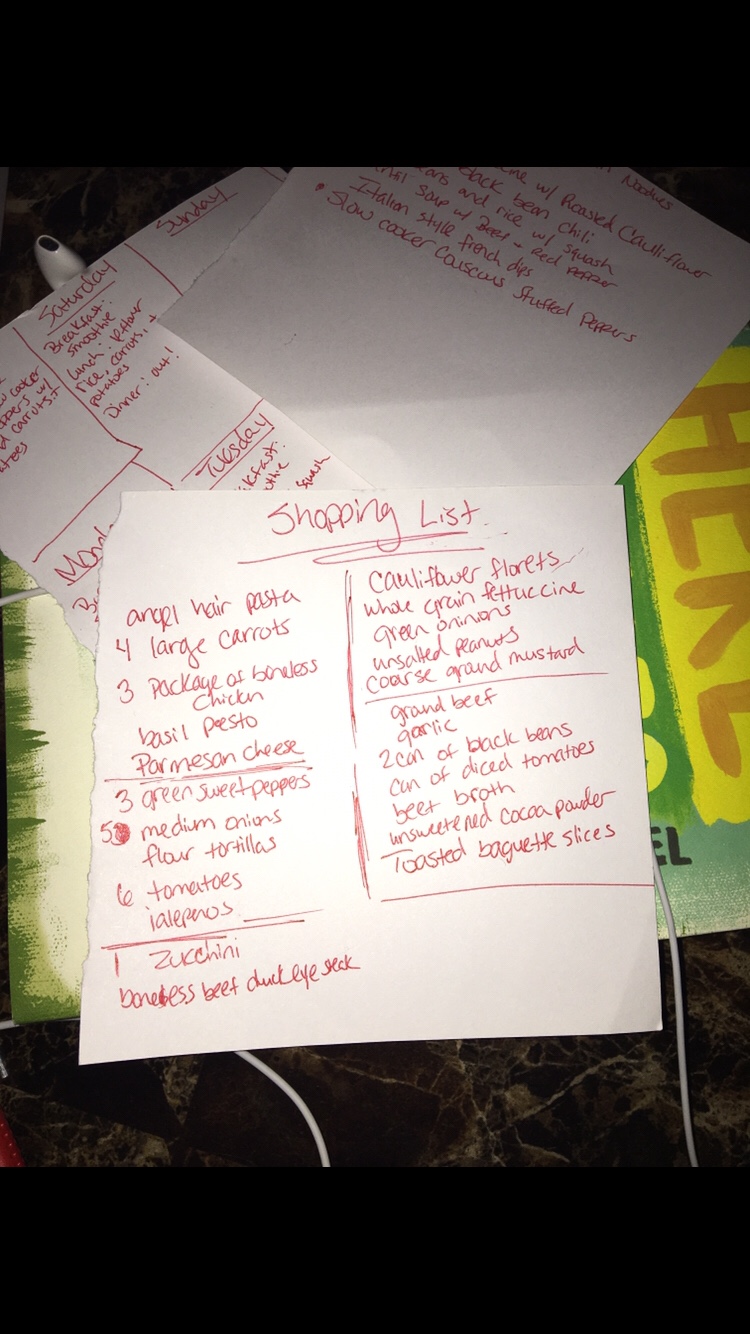 Noodles
w/ Roasted Cauliflower
black bean chili
and rice w/ squash
Soup w/ Beef + Red Pepper
Italian style french dips
• Slow cooker Couscous Stuffed Peppers
Sunday
Saturday
Breakfast:
smoothie
lunch: leftover
rice, carrots, +
potatoes
Dinner: out!
cooker
w/
carrots +
Tuesday
squash
Shopping List
angel hair pasta
4 large carrots
3 package of boneless
chicken
basil pesto
Parmesan cheese
3 green sweet peppers
5 medium onions
flour tortillas
6 tomatoes
jalepenos
1 zucchini
boneless beef chuck eye steak
Cauliflower florets
whole grain fettuccine
green oninions
unsalted peanuts
coarse grand mustard
grand beef
garlic
2 can of black beans
can of diced tomatoes
beef broth
unsweetened cocoa powder
Toasted baguette slices
HERE
EL